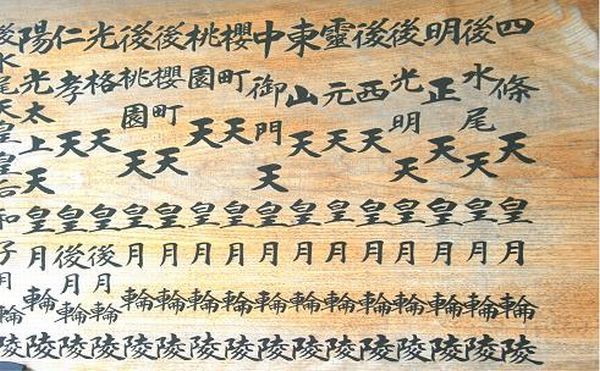 四條天皇月輪陵
後水尾天皇月輪陵
明正天皇月輪陵
後光明天皇月輪陵
後西天皇月輪陵
靈元天皇月輪陵
東山天皇月輪陵
中御門天皇月輪陵
櫻町天皇月輪陵
桃園天皇月輪陵
後櫻町天皇月輪陵
後桃園天皇月輪陵
光格天皇後月輪陵
仁孝天皇後月輪陵
陽光太上天皇月輪陵
後水尾天皇皇后和子月輪陵